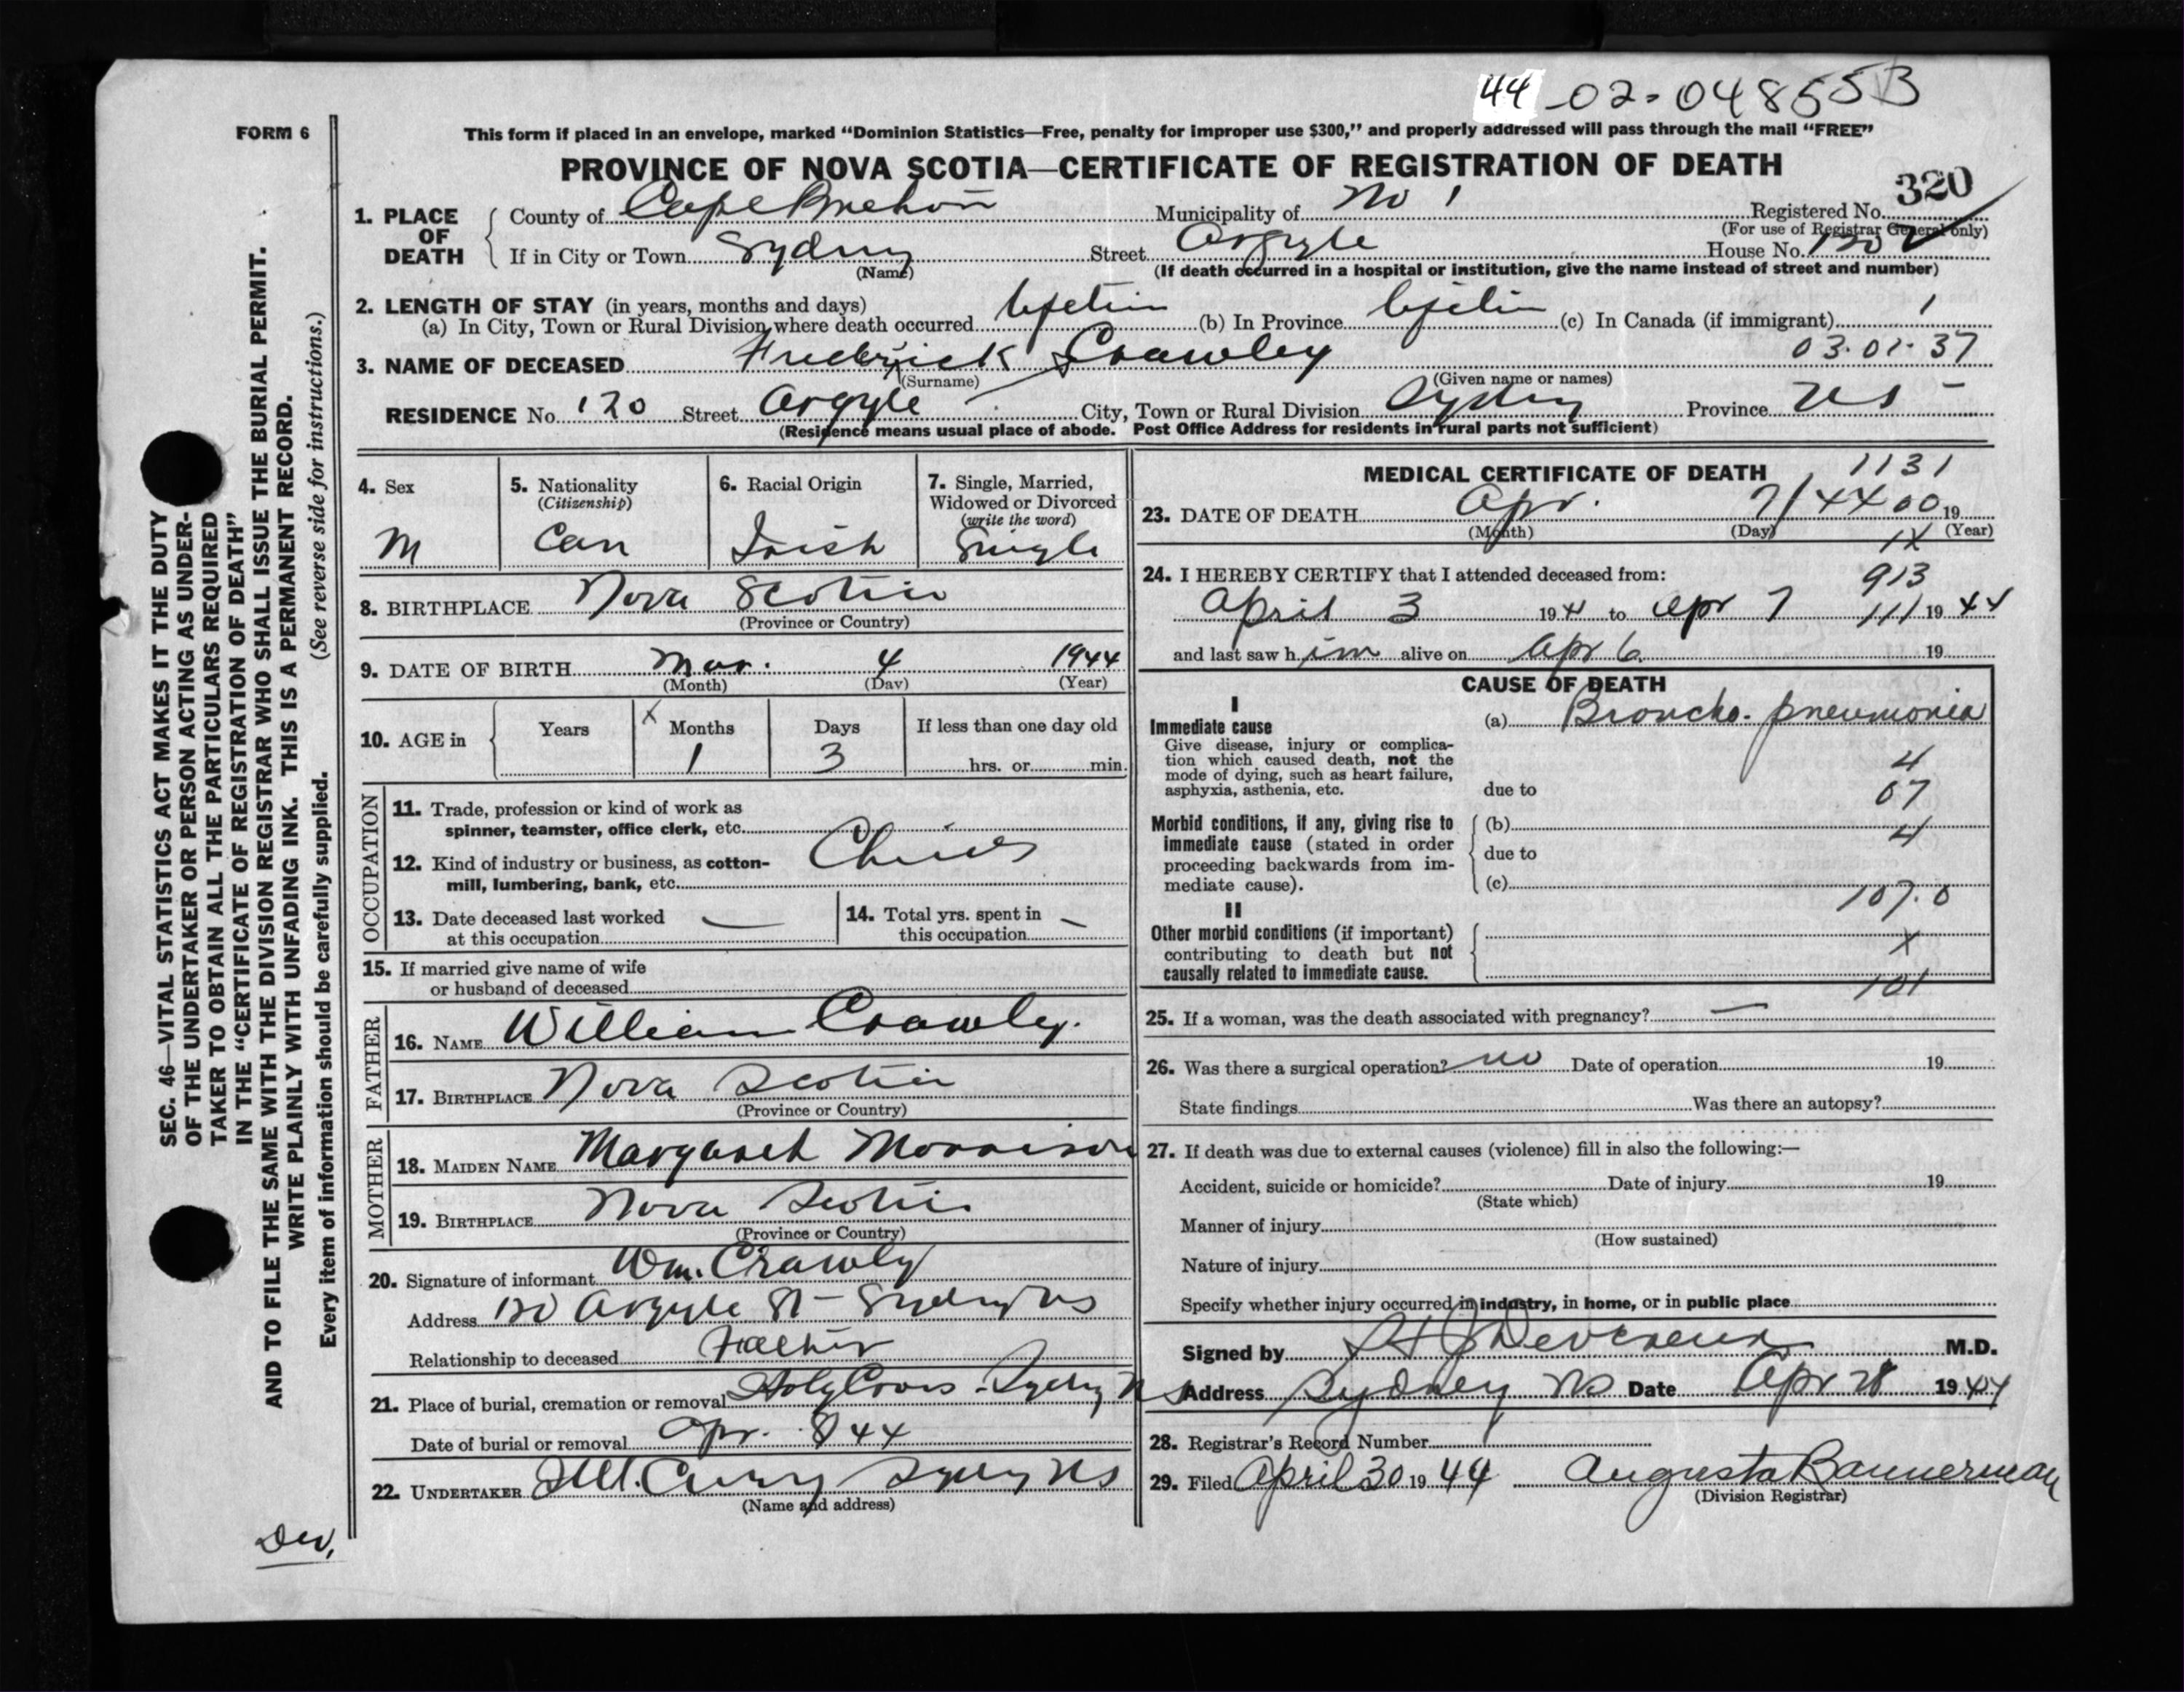 44-02-048553
FORM 6
This form if placed in an envelope, marked “Dominion Statistics—Free, penalty for improper use $300,” and properly addressed will pass through the mail “FREE”
PROVINCE OF NOVA SCOTIA—CERTIFICATE OF REGISTRATION OF DEATH
320
1. PLACE OF DEATH
County of Cape Breton Municipality of No 1 Registered No.
(For use of Registrar General only)
If in City or Town Sydney Street Argyle House No. 120
(Name) (If death occurred in a hospital or institution, give the name instead of street and number)
2. LENGTH OF STAY (in years, months and days)
(a) In City, Town or Rural Division where death occurred Lifetim (b) In Province Lifetim (c) In Canada (if immigrant) 1
03.01.37
3. NAME OF DECEASED Frederick Crawley
(Surname) (Given name or names)
RESIDENCE No. 120 Street Argyle City, Town or Rural Division Sydney Province NS
(Residence means usual place of abode. Post Office Address for residents in rural parts not sufficient)
4. Sex M
5. Nationality (Citizenship) Can
6. Racial Origin Irish
7. Single, Married, Widowed or Divorced (write the word) Single
8. BIRTHPLACE Nova Scotia
(Province or Country)
9. DATE OF BIRTH Mar. 4 1944
(Month) (Day) (Year)
10. AGE in Years Months Days If less than one day old
X 1 3 hrs. or min.
OCCUPATION
11. Trade, profession or kind of work as
spinner, teamster, office clerk, etc.
12. Kind of industry or business, as cotton-
mill, lumbering, bank, etc.
13. Date deceased last worked
at this occupation —
14. Total yrs. spent in
this occupation —
15. If married give name of wife
or husband of deceased
FATHER
16. NAME William Crawley.
17. BIRTHPLACE Nova Scotia
(Province or Country)
MOTHER
18. MAIDEN NAME Margaret Morrison
19. BIRTHPLACE Nova Scotia
(Province or Country)
20. Signature of informant Wm. Crawley
Address 120 Argyle St - Sydney NS
Relationship to deceased Father
21. Place of burial, cremation or removal Holy Cross - Sydney NS
Date of burial or removal Apr. 8 44
22. UNDERTAKER Curry Sydney NS
(Name and address)
MEDICAL CERTIFICATE OF DEATH
1131
23. DATE OF DEATH Apr. 7/44 00 19
(Month) (Day) (Year)
1X
24. I HEREBY CERTIFY that I attended deceased from:
913
April 3 1944 to Apr 7 111 1944
and last saw him alive on Apr 6 19
CAUSE OF DEATH
I
Immediate cause (a) Broncho-pneumonia
Give disease, injury or complica-
tion which caused death, not the
mode of dying, such as heart failure,
asphyxia, asthenia, etc. due to
4
07
Morbid conditions, if any, giving rise to (b)
4
immediate cause (stated in order due to
proceeding backwards from im-
mediate cause). (c)
107.0
II
Other morbid conditions (if important)
contributing to death but not X
causally related to immediate cause.
101
25. If a woman, was the death associated with pregnancy? —
26. Was there a surgical operation? no Date of operation 19
State findings Was there an autopsy?
27. If death was due to external causes (violence) fill in also the following:—
Accident, suicide or homicide? Date of injury 19
(State which)
Manner of injury
(How sustained)
Nature of injury
Specify whether injury occurred in industry, in home, or in public place
Signed by Devereux M.D.
Address Sydney NS Date Apr 28 1944
28. Registrar's Record Number
29. Filed April 30 1944 Augusta Bannerman
(Division Registrar)
SEC. 46—VITAL STATISTICS ACT MAKES IT THE DUTY
OF THE UNDERTAKER OR PERSON ACTING AS UNDER-
TAKER TO OBTAIN ALL THE PARTICULARS REQUIRED
IN THE “CERTIFICATE OF REGISTRATION OF DEATH”
AND TO FILE THE SAME WITH THE DIVISION REGISTRAR WHO SHALL ISSUE THE BURIAL PERMIT.
WRITE PLAINLY WITH UNFADING INK. THIS IS A PERMANENT RECORD.
Every item of information should be carefully supplied. (See reverse side for instructions.)